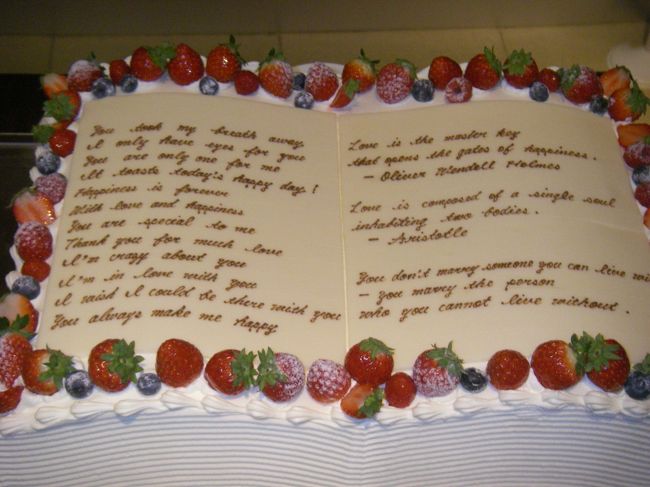 You took my breath away
I only have eyes for you
You are only one for me
It toasts today's happy day!
Happiness is forever
With love and happiness
You are special to me
Thank you for much love
I'm crazy about you
I'm in love with you
I wish I could be there with you
You always make me happy
Love is the master key
that opens the gates of happiness.
- Oliver Wendell Holmes
Love is composed of a single soul
inhabiting two bodies.
- Aristotle
You don't marry someone you can live wi
- you marry the person
who you cannot live without.